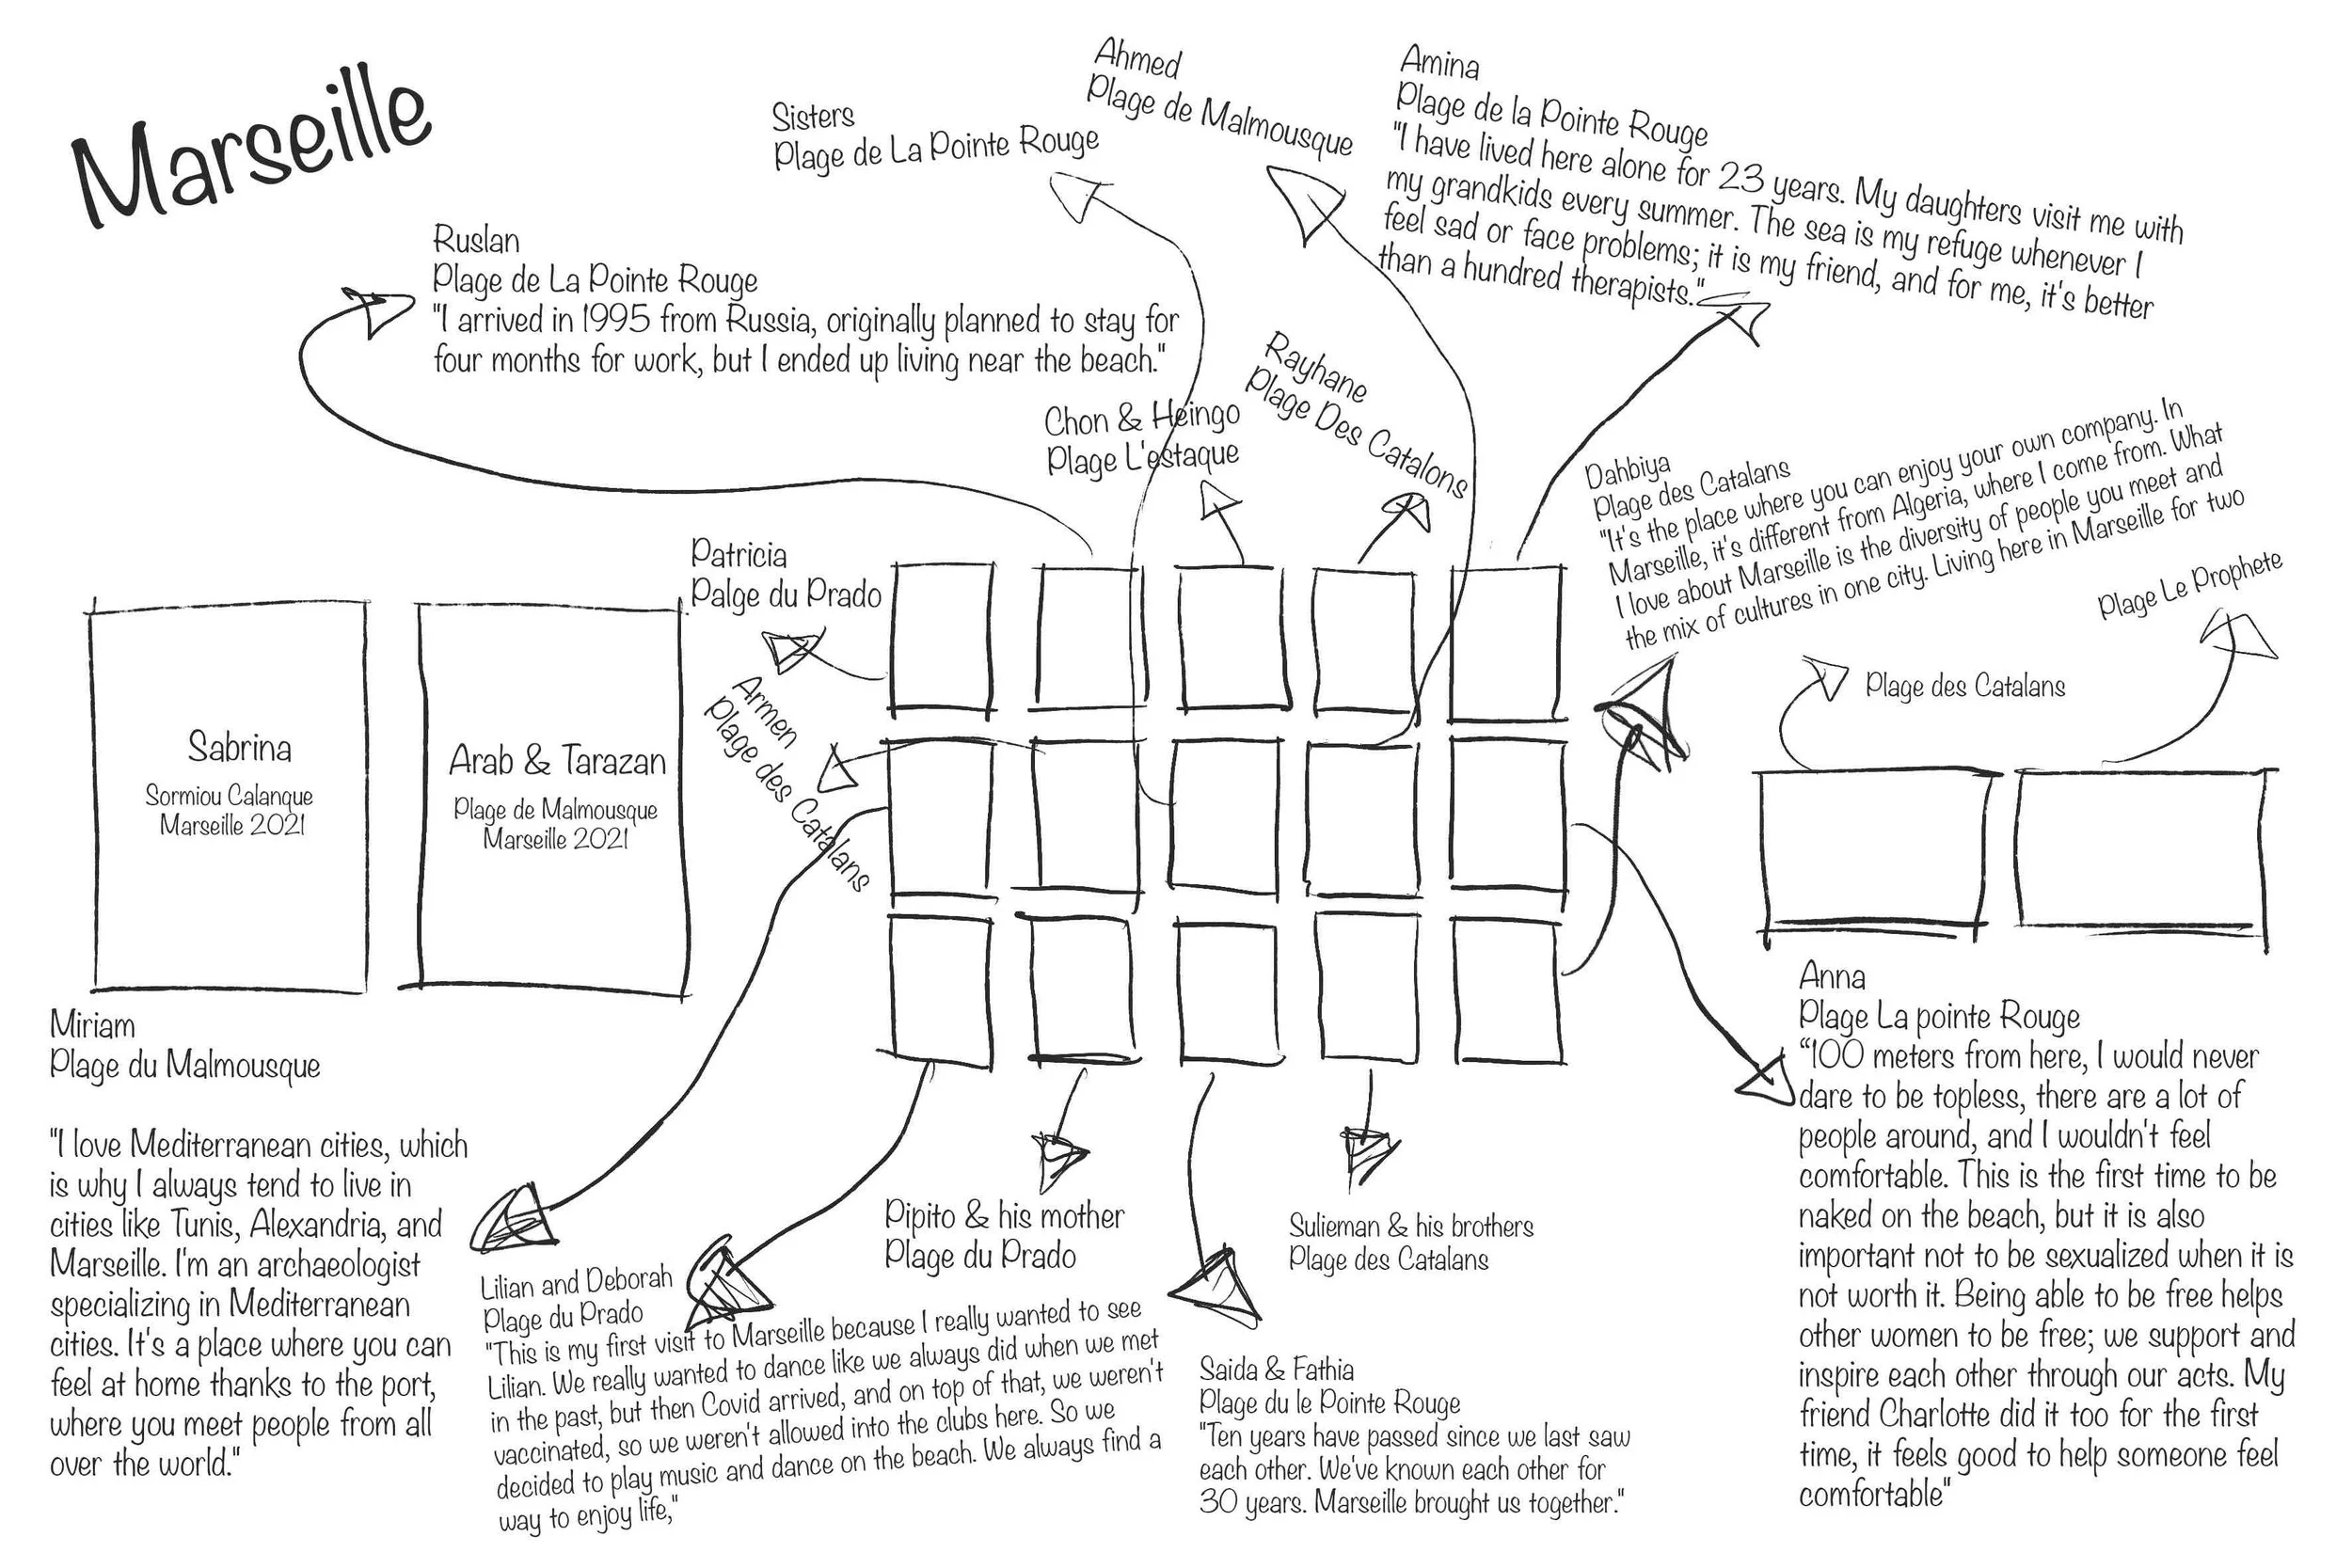 Marseille
Sisters
Plage de La Pointe Rouge
Ahmed
Plage de Malmousque
Amina
Plage de la Pointe Rouge
"I have lived here alone for 23 years. My daughters visit me with
my grandkids every summer. The sea is my refuge whenever I
feel sad or face problems; it is my friend, and for me, it's better
than a hundred therapists."
Ruslan
Plage de La Pointe Rouge
"I arrived in 1995 from Russia, originally planned to stay for
four months for work, but I ended up living near the beach."
Chon & Heingo
Plage L'estaque
Rayhane
Plage Des Catalons
Dahbiya
Plage des Catalans
"It's the place where you can enjoy your own company. In
Marseille, it's different from Algeria, where I come from. What
I love about Marseille is the diversity of people you meet and
the mix of cultures in one city. Living here in Marseille for two
Patricia
Palge du Prado
Armen
Plage des Catalans
Plage Le Prophete
Plage des Catalans
Sabrina
Sormiou Calanque
Marseille 2021
Arab & Tarazan
Plage de Malmousque
Marseille 2021
Miriam
Plage du Malmousque
"I love Mediterranean cities, which
is why I always tend to live in
cities like Tunis, Alexandria, and
Marseille. I'm an archaeologist
specializing in Mediterranean
cities. It's a place where you can
feel at home thanks to the port,
where you meet people from all
over the world."
Lilian and Deborah
Plage du Prado
"This is my first visit to Marseille because I really wanted to see
Lilian. We really wanted to dance like we always did when we met
in the past, but then Covid arrived, and on top of that, we weren't
vaccinated, so we weren't allowed into the clubs here. So we
decided to play music and dance on the beach. We always find a
way to enjoy life,"
Pipito & his mother
Plage du Prado
Sulieman & his brothers
Plage des Catalans
Saida & Fathia
Plage du le Pointe Rouge
"Ten years have passed since we last saw
each other. We've known each other for
30 years. Marseille brought us together."
Anna
Plage La pointe Rouge
“100 meters from here, I would never
dare to be topless, there are a lot of
people around, and I wouldn't feel
comfortable. This is the first time to be
naked on the beach, but it is also
important not to be sexualized when it is
not worth it. Being able to be free helps
other women to be free; we support and
inspire each other through our acts. My
friend Charlotte did it too for the first
time, it feels good to help someone feel
comfortable"